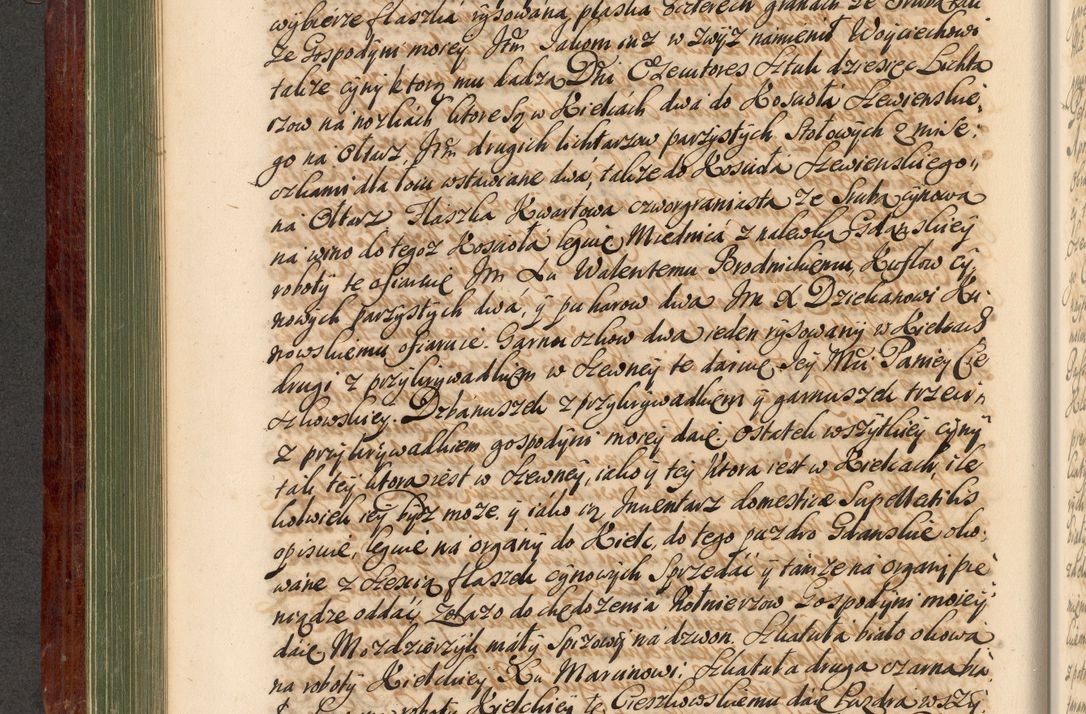 wybierze flaszka rysowana płaska o czterech granach ze srubą
Ze Gospodyni moiey. Jtm Jakom iusz w zwyż namienił Woyciechowi
także cyny ktorą mu kadzą Dni Executores sztuk dziesięć Lichta
rzow na nozkach ktore są w Kielcach dwa do Koscioła Szewienskie,
go na Ołtarz, Jtm drugich lichtarzow parzystych Stołowych z mise,
czkami dla łoiu wstawiane dwa, także do Kościoła Szewienskiego
na Ołtarz Flaszka Kwartowa czworgraniasta ze srubą cynowa
na wino do tegoż Kościoła leguię Miednica z nalewką Gdańskiey
roboty te ofiaruię Jm Xu Walentemu Brodnickiemu, Kuflow cy
nowych parzystych dwa, y puharow dwa Jm X Dziekanowi Ku
nowskiemu ofiaruie. Garncuszkow dwa ieden rysowany w Kielcach
drugi z przykrywadłkiem w Szewney te daruię Jey Mći Paniey Cie
szkowskiey. Dzbanuszek z przykrywadłkiem y garnuszek trzeci
z przykrywadłkiem gospodyni moiey daię, Ostatek wszytkiey cyny
tak tey ktora iest w Szewney, iako y tey ktora iest w Kielcach, ile
kolwiek iey bydz może y iako ią Inuentarz domesticæ Supellectilis
opisuie, leguię na organy do Kielc, do tego puzdro Gdanskie oko,
wane z sześcią flaszek cynowych Sprzedać y tamże na organy pie
niądze oddać, Żelazo do chędożenia Kołnierzow Gospodyni moiey
daię Mozdzierzyk mały Spiżowy na dzwon. Szkatuła biało okowa
na roboty Kielckiey Xu Marcinowi; Szkatuła druga czarna bia
roboty Kielckiey te Cieszkowskiemu daię Puzdra wszy,